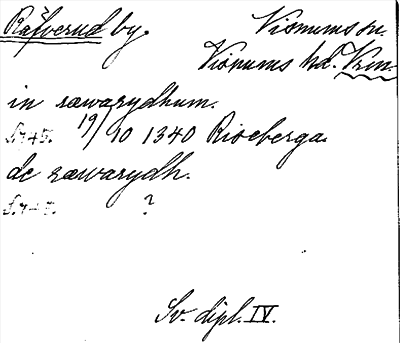 Räfverud by. Visnums sn.
Visnums hd. Vrm.
in ræwarydhum.
S. 745. 19/10 1340 Riseberga.
de ræwarydh.
S. 745. ?
Sv. dipl. IV.